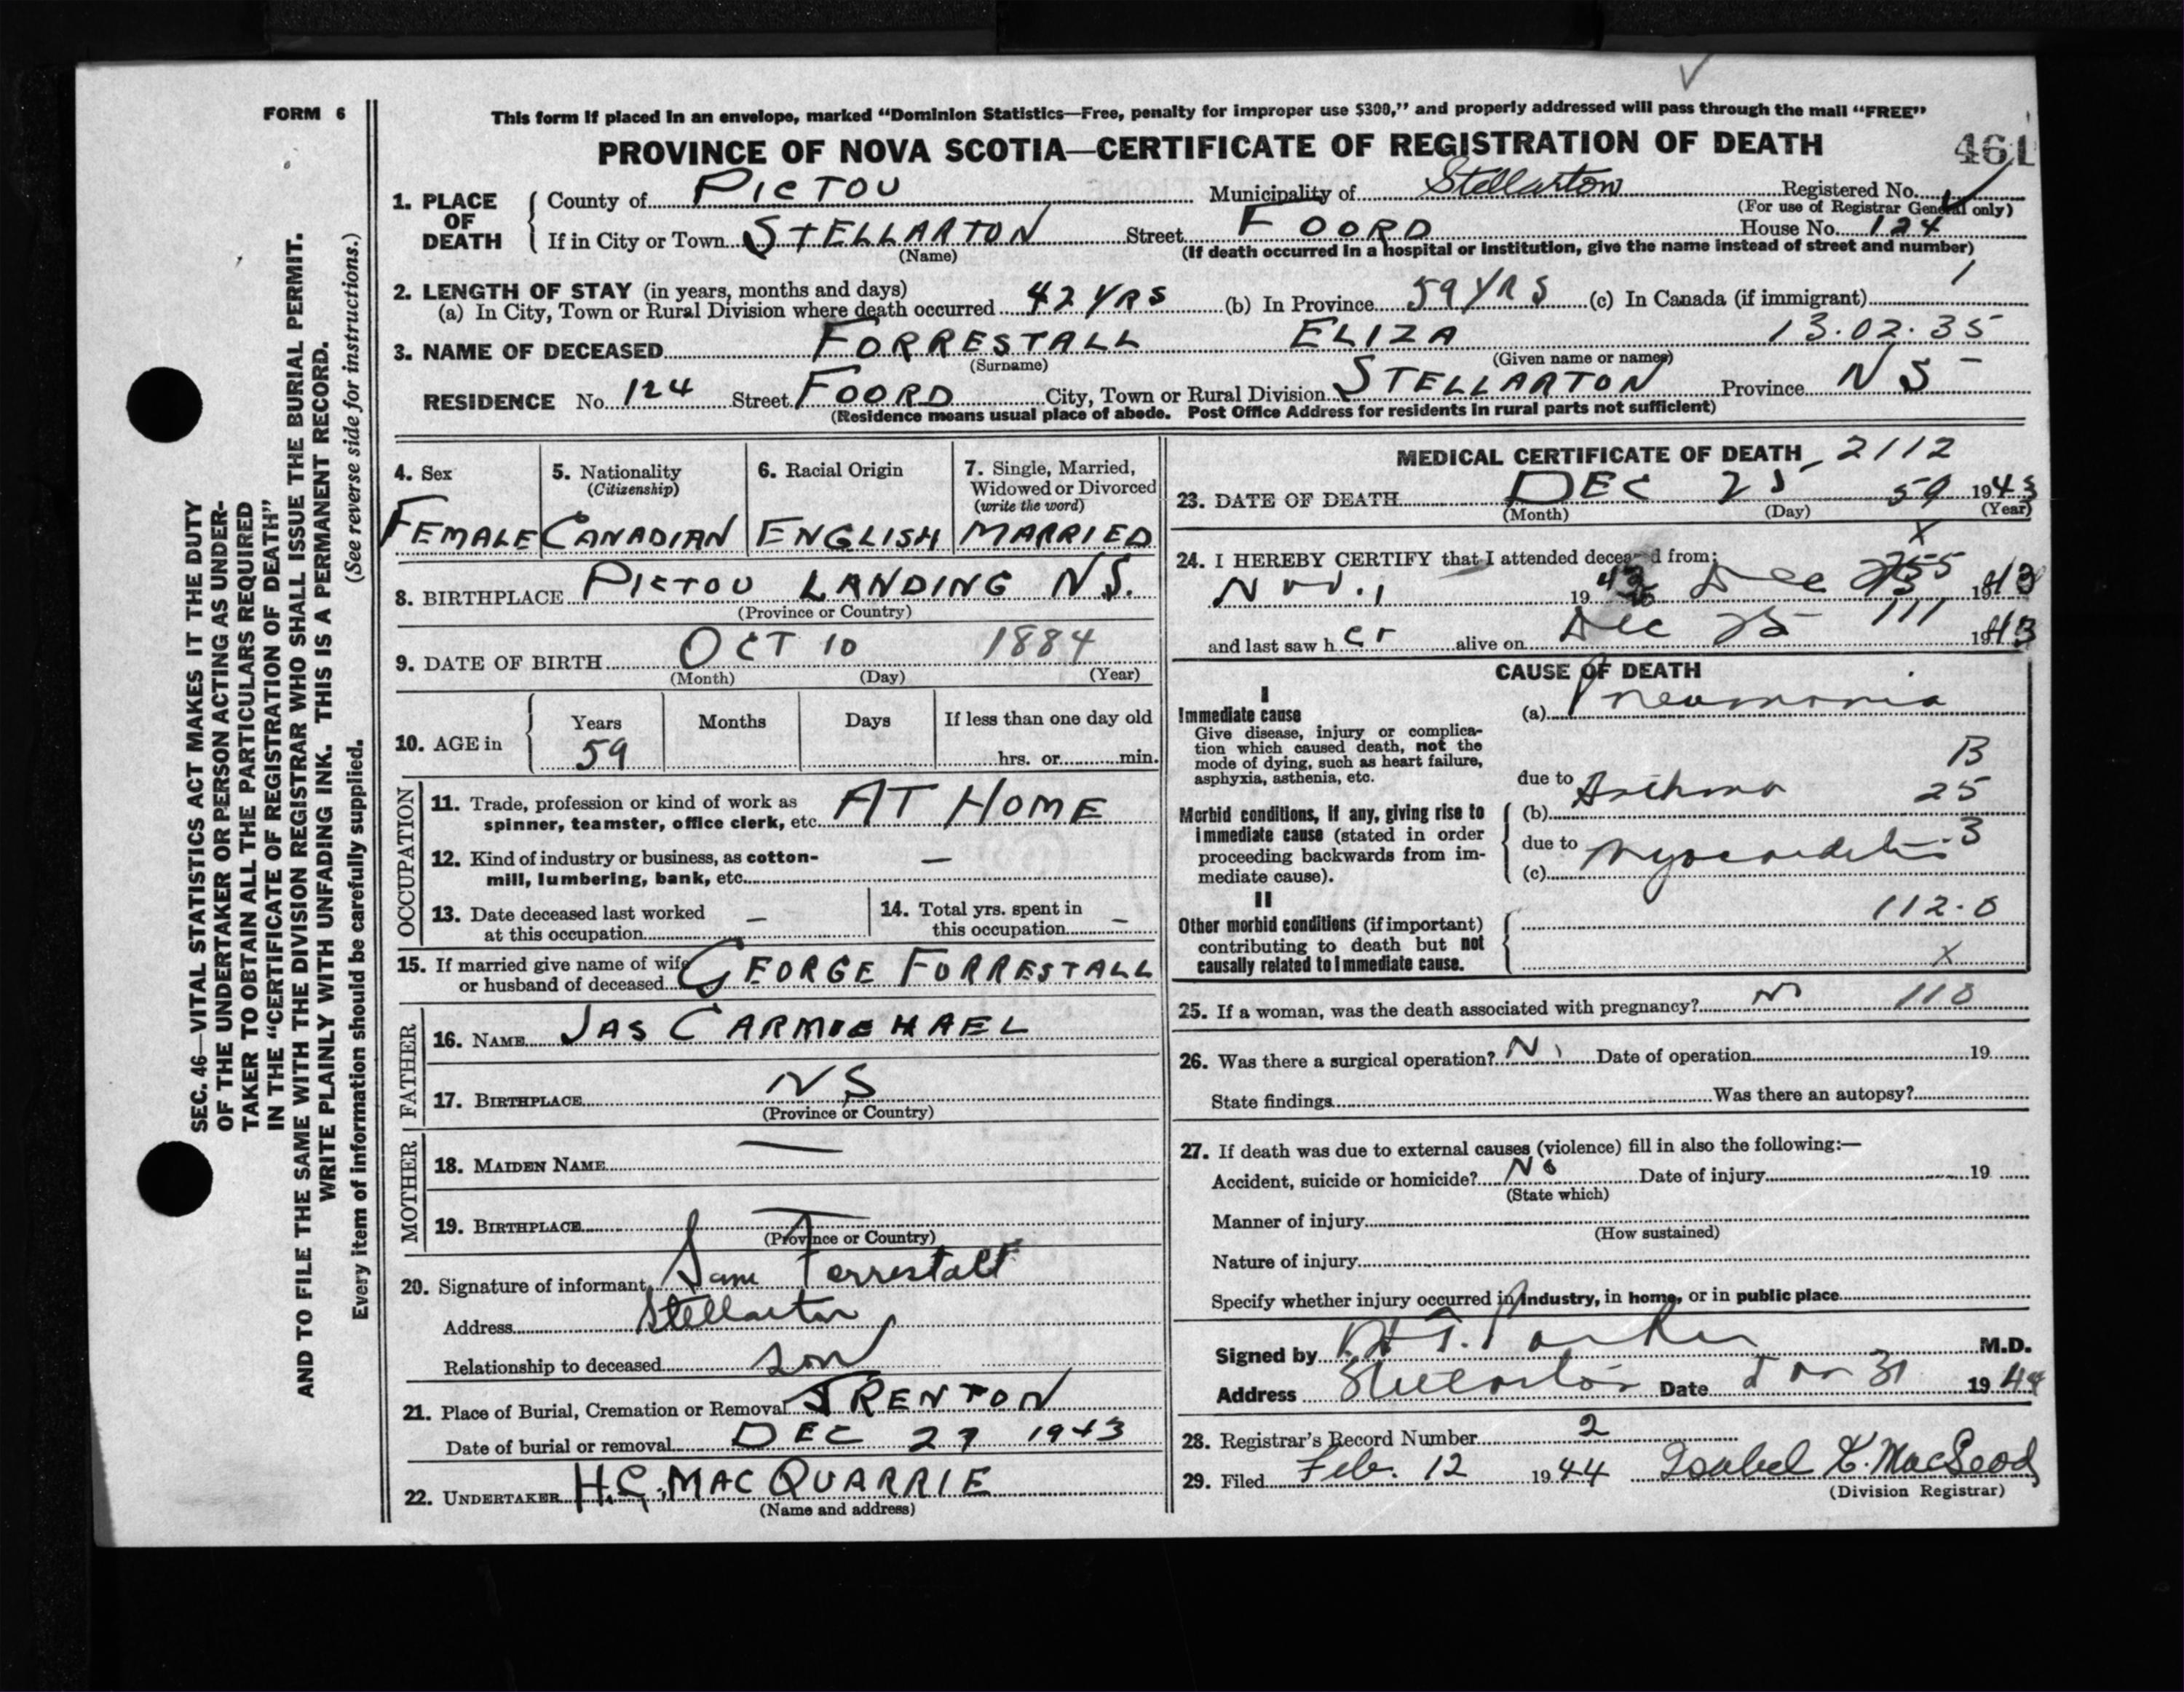 FORM 6
This form if placed in an envelope, marked “Dominion Statistics—Free, penalty for improper use $300,” and properly addressed will pass through the mail “FREE”
PROVINCE OF NOVA SCOTIA—CERTIFICATE OF REGISTRATION OF DEATH
461
1. PLACE OF DEATH
County of PICTOU Municipality of Stellarton Registered No.
(For use of Registrar General only)
If in City or Town STELLARTON Street FOORD House No. 124
(Name) (If death occurred in a hospital or institution, give the name instead of street and number)
2. LENGTH OF STAY (in years, months and days) 1
(a) In City, Town or Rural Division where death occurred 42 YRS (b) In Province 59 YRS (c) In Canada (if immigrant)
3. NAME OF DECEASED FORRESTALL ELIZA 13.02.35
(Surname) (Given name or names)
RESIDENCE No. 124 Street FOORD City, Town or Rural Division STELLARTON Province NS
(Residence means usual place of abode. Post Office Address for residents in rural parts not sufficient)
4. Sex
FEMALE
5. Nationality
(Citizenship)
CANADIAN
6. Racial Origin
ENGLISH
7. Single, Married,
Widowed or Divorced
(write the word)
MARRIED
8. BIRTHPLACE PICTOU LANDING NS.
(Province or Country)
9. DATE OF BIRTH OCT 10 1884
(Month) (Day) (Year)
10. AGE in
Years Months Days If less than one day old
59 hrs. or min.
OCCUPATION
11. Trade, profession or kind of work as
spinner, teamster, office clerk, etc. AT HOME
12. Kind of industry or business, as cotton-
mill, lumbering, bank, etc. —
13. Date deceased last worked
at this occupation —
14. Total yrs. spent in
this occupation —
15. If married give name of wife
or husband of deceased GEORGE FORRESTALL
FATHER
16. NAME JAS CARMICHAEL
17. BIRTHPLACE NS
(Province or Country)
MOTHER
18. MAIDEN NAME —
19. BIRTHPLACE —
(Province or Country)
20. Signature of informant Sam Forrestall
Address Stellarton
Relationship to deceased son
21. Place of Burial, Cremation or Removal TRENTON
Date of burial or removal DEC 27 1943
22. UNDERTAKER H.C. MACQUARRIE
(Name and address)
MEDICAL CERTIFICATE OF DEATH 2112
23. DATE OF DEATH DEC 25 59 1943
(Month) (Day) (Year)
X
24. I HEREBY CERTIFY that I attended deceased from:
Nov. 1 1943 Dec 25 1943
and last saw her alive on Dec 25 111 1943
CAUSE OF DEATH
I
Immediate cause
Give disease, injury or complica-
tion which caused death, not the
mode of dying, such as heart failure,
asphyxia, asthenia, etc.
(a) Pneumonia
B
due to
Morbid conditions, if any, giving rise to
immediate cause (stated in order
proceeding backwards from im-
mediate cause).
(b) Asthma 25
due to
(c) Myocarditis 3
II
Other morbid conditions (if important)
contributing to death but not
causally related to immediate cause.
112.0
X
25. If a woman, was the death associated with pregnancy? No 110
26. Was there a surgical operation? No Date of operation 19
State findings Was there an autopsy?
27. If death was due to external causes (violence) fill in also the following:—
Accident, suicide or homicide? No Date of injury 19
(State which)
Manner of injury
(How sustained)
Nature of injury
Specify whether injury occurred in industry, in home, or in public place
Signed by Parker M.D.
Address Stellarton Date Jan 31 1944
28. Registrar's Record Number 2
29. Filed Feb. 12 1944 Isabel K. MacLeod
(Division Registrar)
SEC. 46—VITAL STATISTICS ACT MAKES IT THE DUTY
OF THE UNDERTAKER OR PERSON ACTING AS UNDER-
TAKER TO OBTAIN ALL THE PARTICULARS REQUIRED
IN THE “CERTIFICATE OF REGISTRATION OF DEATH”
AND TO FILE THE SAME WITH THE DIVISION REGISTRAR WHO SHALL ISSUE THE BURIAL PERMIT.
WRITE PLAINLY WITH UNFADING INK. THIS IS A PERMANENT RECORD.
Every item of information should be carefully supplied. (See reverse side for instructions.)